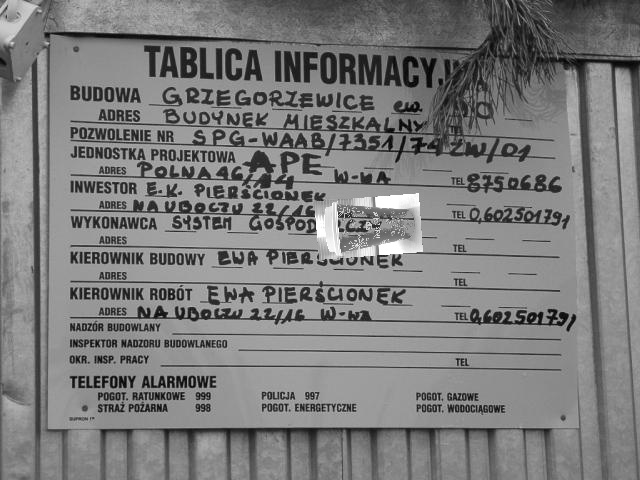 TABLICA INFORMACYJNA
BUDOWA GRZEGORZEWICE ew.
ADRES BUDYNEK MIESZKALNY
POZWOLENIE NR SPG-WAAB/7351/74 ZW/01
JEDNOSTKA PROJEKTOWA APE
ADRES POLNA 46/14 W-WA TEL 8750686
INWESTOR E.K. PIERŚCIONEK
ADRES NA UBOCZU 22/16 TEL 0,602501791
WYKONAWCA SYSTEM
ADRES TEL
KIEROWNIK BUDOWY EWA PIERŚCIONEK
ADRES TEL
KIEROWNIK ROBÓT EWA PIERŚCIONEK
ADRES NA UBOCZU 22/16 W-wa TEL 0,602501791
NADZÓR BUDOWLANY
INSPEKTOR NADZORU BUDOWLANEGO
OKR. INSP. PRACY TEL
TELEFONY ALARMOWE
POGOT. RATUNKOWE 999 POLICJA 997 POGOT. GAZOWE
STRAŻ POŻARNA 998 POGOT. ENERGETYCZNE POGOT. WODOCIĄGOWE